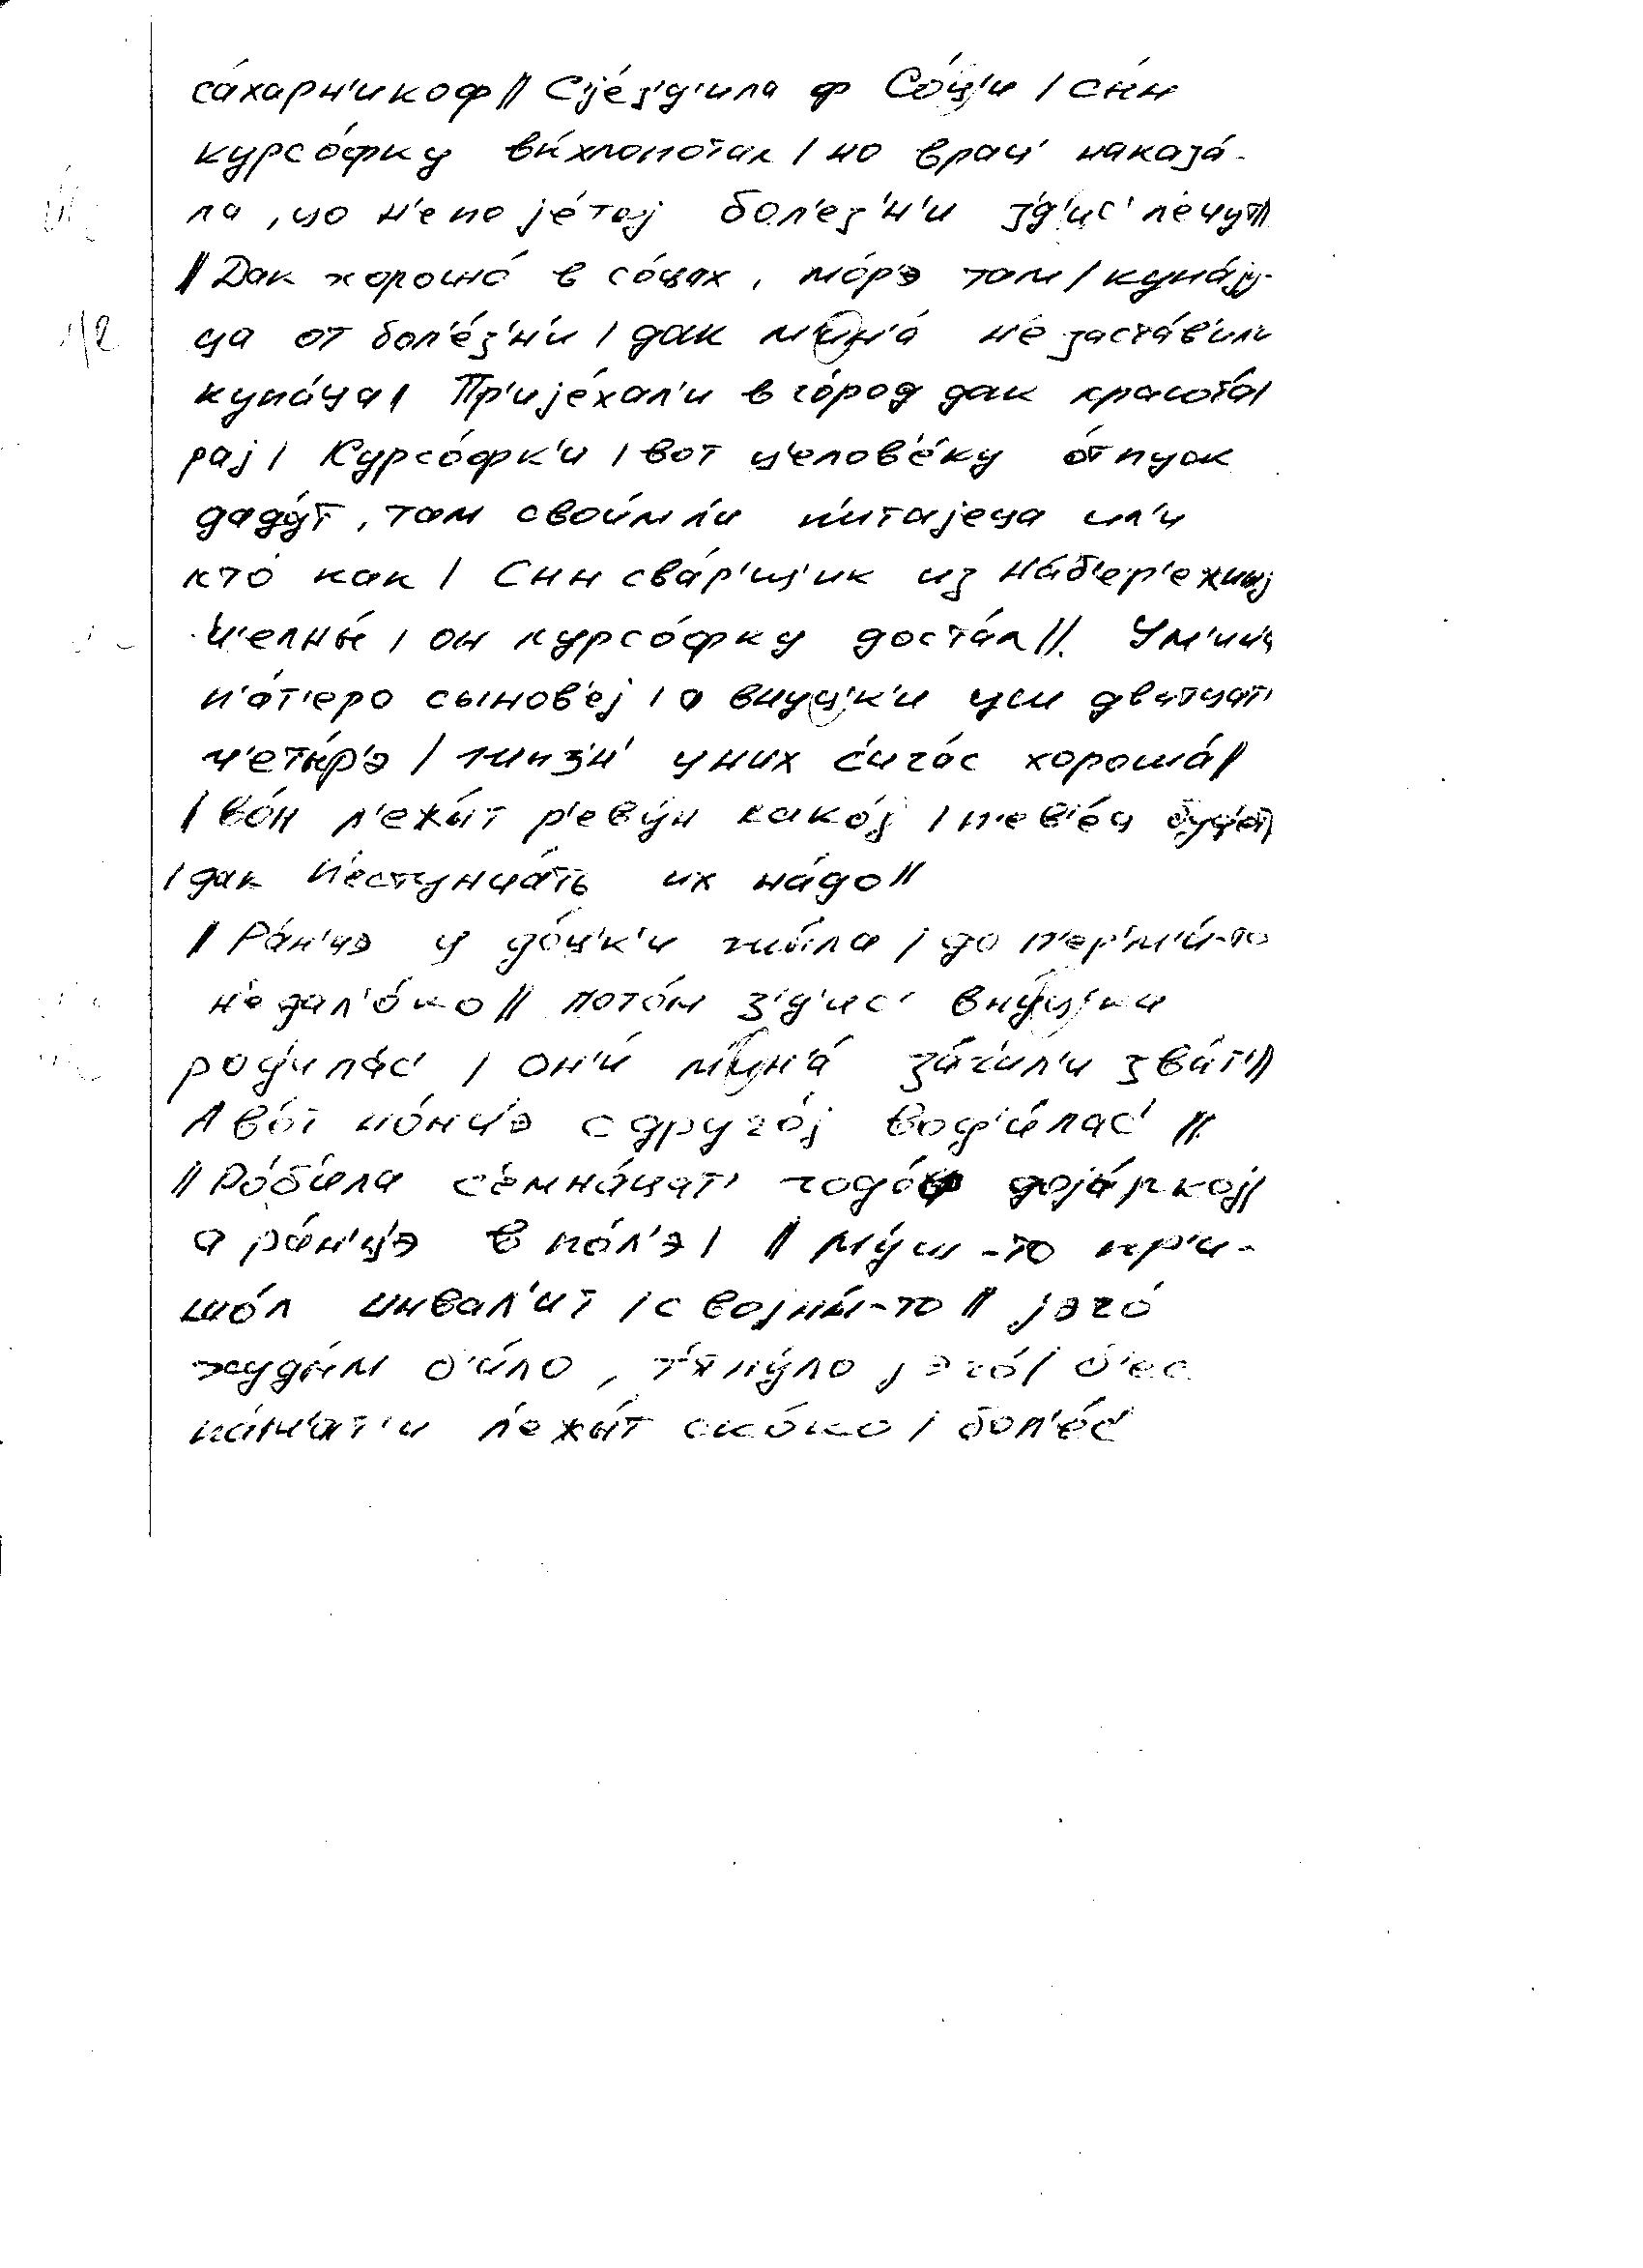 са́харн'икоф // Сjе́з'д'ила ф Со́ц'и / сын
курсо́фку вы́хлопотал / но врач' наказа́-
ла, цо н'е по jе́тоj бол'ез'н'и з'д'ис' лечут //
// Дак хорошо́ в со́цах, мо́р'э там / купа́jу-
ца от бол'е́з'н'и / дак м'ин'а́ н'е заста́в'или
купа́ца / Пр'иjе́хал'и в го́род дак красота́ /
раj / Курсо́фк'и / вот ц'елов'е́ку о́тпуск
даду́т, там свои́м л'и п'ита́jеца ил'и
кто́ как / Сын сва́р'щ'ик из На́б'ер'ежныj
Ч'елны́ / он курсо́фку доста́л //. У м'ин'а́
п'а́т'еро сынов'еj / а внуц'к'и уш двацат'
ч'еты́р'э / жыз'н' у них с'ига́с хороша́ //
/ во́н л'ежы́т р'еву́н како́j / п'ев'е́ц бу́д'ет /
/ дак н'есту́нчать их на́до //
// Ра́н'цэ у до́ц'к'и жы́ла / до п'ер'м'и́-то
н'едал'о́ко // пото́м з'д'ис' вну́ц'ка
род'ила́с' / он'и́ м'ин'а́ за́ч'ил'и зва́т' //
А во́т но́нч'э с друго́j вод'и́лас' //.
// Ро́б'ила с'емна́цат' годо́ф доjа́ркоj /
а ра́н'ц'э в по́л'э / // Му́ш-то пр'и-
шо́л инвал'ит / с воjны́-то // jэго́
худы́м б'и́ло, т'яну́ло jэго́ / б'ес
па́м'ат'и л'ежы́т ско́ко / бол'е́с'